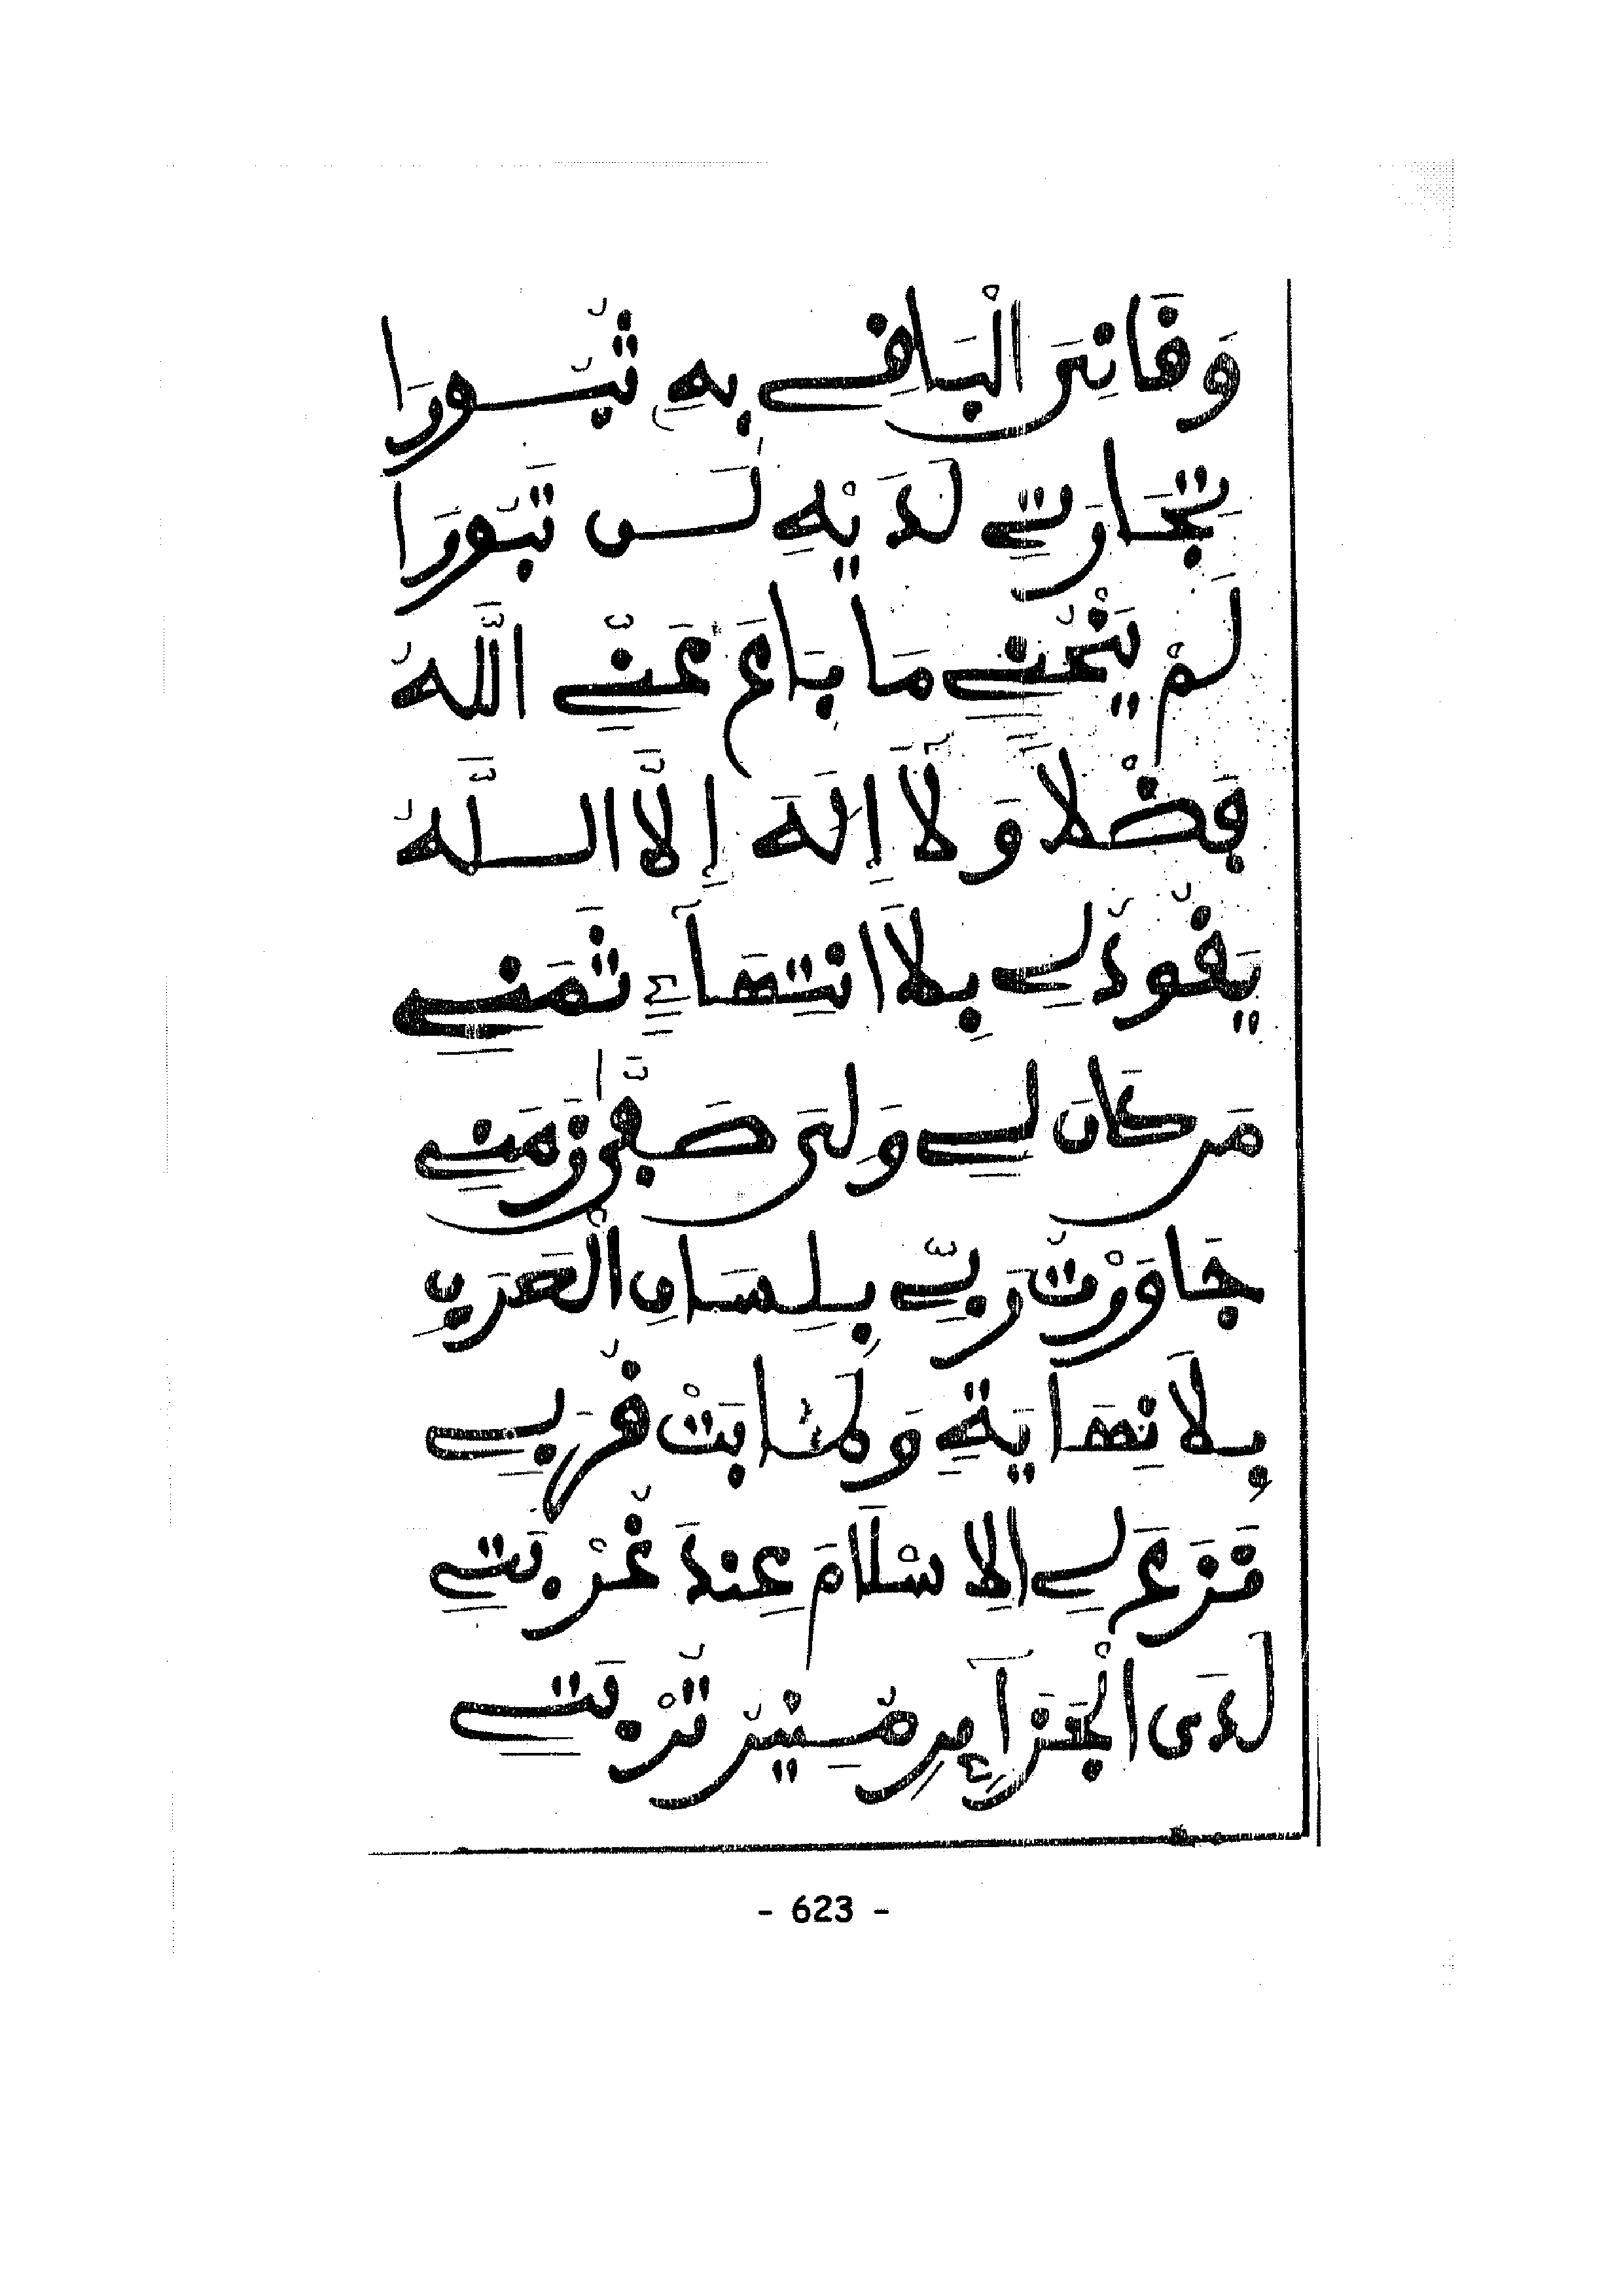 وَقَانِيَ الْبَاقِي بِهِ ثُبُورَا
تِجَارَتِي لَدَيْهِ لَن تَبُورَا
لَمْ مَا بَاعَ عَنِّي اللَّهُ
فَضْلًا وَلَآ إِلَهَ إِلَّا اللَّهُ
يَقُودُ لِي بِلَا انْتِهَآءٍ ثَمَنِي
مَن كَانَ لِي وَلِيَ صَفَّى زَمَنِي
جَاوَرْتُ رَبِّي بِلِسَانِ الْعَرَبِ
بِلَا نِهَايَةٍ قُرَبِي
لِي الإِسْلَامَ عِندَ غُرْبَتِي
لَدَى الْجَزَآءِ مِن مُنِيرِ تُرْبَتِي
- 623 -